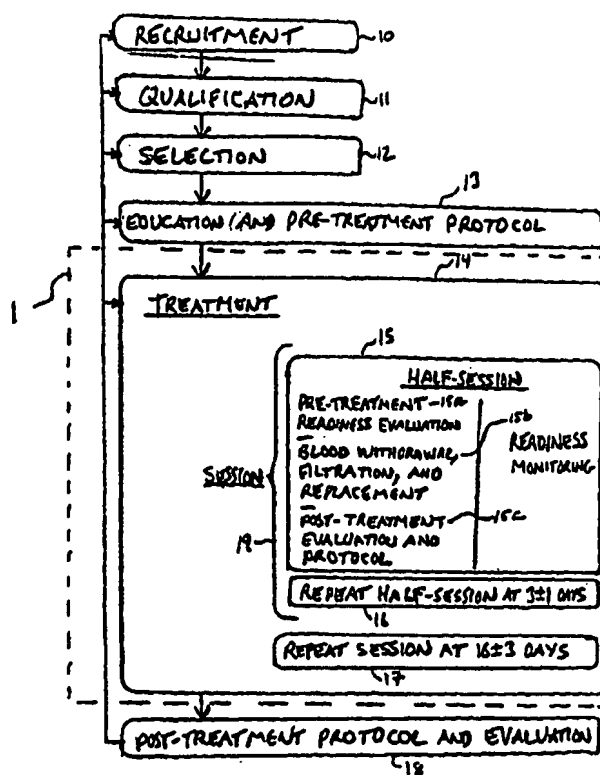 RECRUITMENT
10
QUALIFICATION
11
SELECTION
12
13
EDUCATION/AND PRE-TREATMENT PROTOCOL
1
14
TREATMENT
15
HALF-SESSION
PRE-TREATMENT 15a
READINESS EVALUATION
15b
BLOOD WITHDRAWAL,
FILTRATION, AND
REPLACEMENT
READINESS
MONITORING
SESSION
POST-TREATMENT 15c
EVALUATION AND
PROTOCOL
19
REPEAT HALF-SESSION AT 3±1 DAYS
16
REPEAT SESSION AT 16±3 DAYS
17
POST-TREATMENT PROTOCOL AND EVALUATION
18